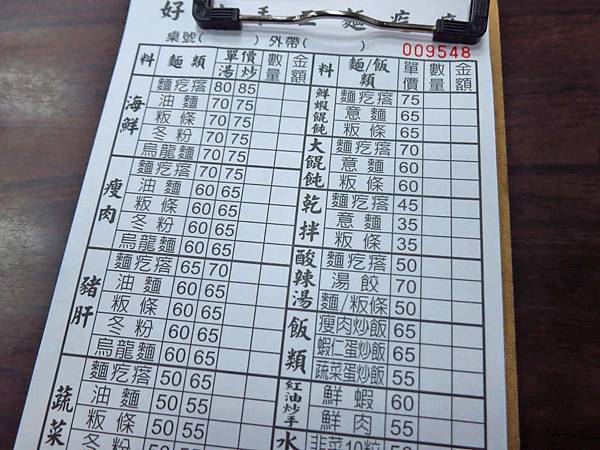 好 手 麵 疙
009548
桌號( ) 外帶( )
料 麵類 單價 數量 金額
湯 炒
海鮮
麵疙瘩 80 85
油麵 70 75
粄條 70 75
冬粉 70 75
烏龍麵 70 75
瘦肉
麵疙瘩 70 75
油麵 60 65
粄條 60 65
冬粉 60 65
烏龍麵 60 65
豬肝
麵疙瘩 65 70
油麵 60 65
粄條 60 65
冬粉 60 65
烏龍麵 60 65
蔬菜
麵疙瘩 50 65
油麵 50 55
粄條 50 55
冬粉 50 55
料 麵/飯類 單價 數量 金額
鮮蝦餛飩
麵疙瘩 75
意麵 65
粄條 65
大餛飩
麵疙瘩 70
意麵 60
粄條 60
乾拌
麵疙瘩 45
意麵 35
粄條 35
酸辣湯
麵疙瘩 50
湯餃 70
麵/粄條 50
飯類
瘦肉炒飯 65
蝦仁蛋炒飯 65
蔬菜蛋炒飯 55
紅油炒手
鮮蝦 60
鮮肉 55
水
韭菜10粒 50